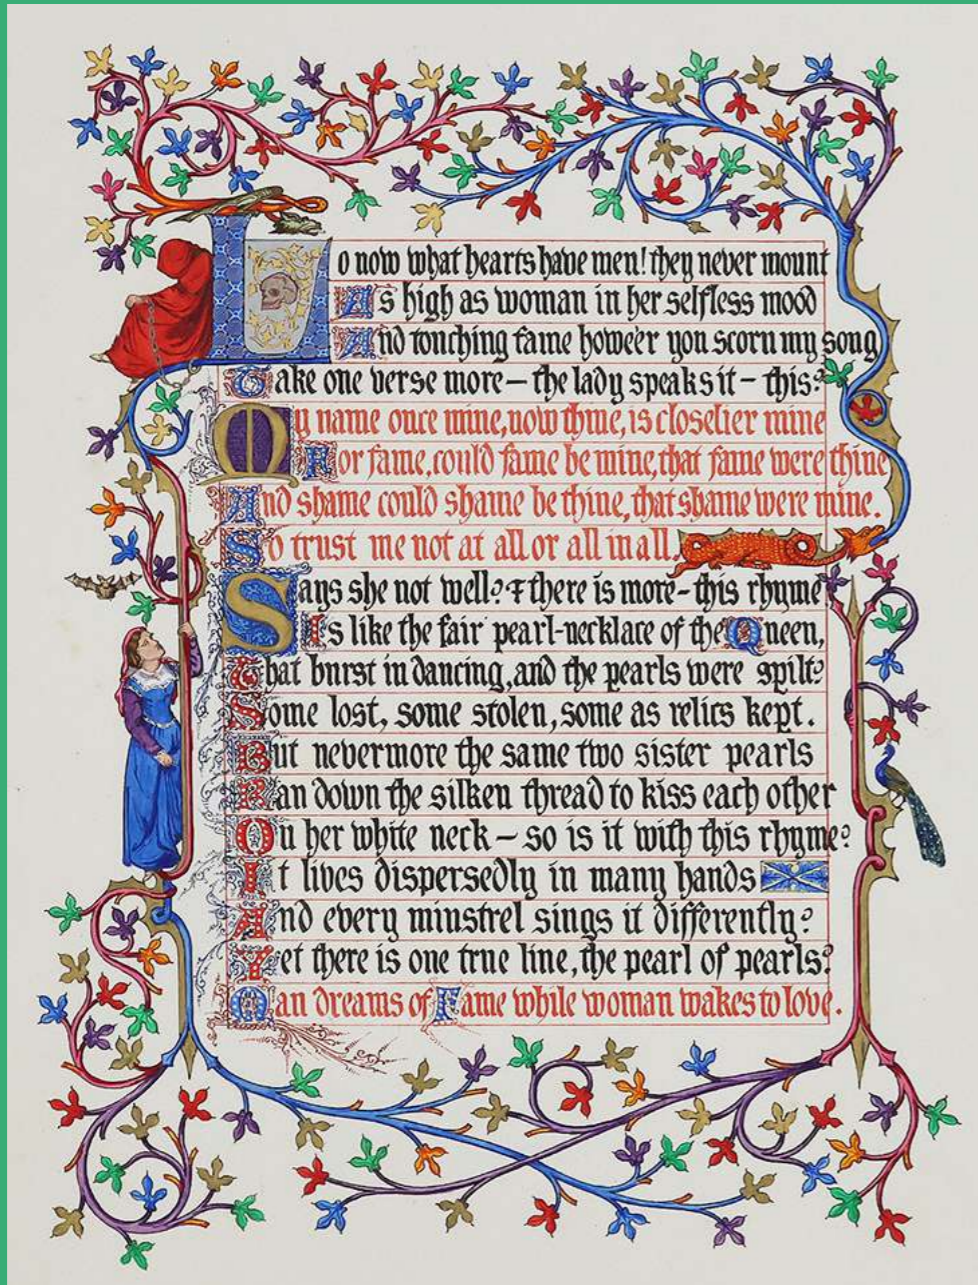 Lo now what hearts have men! they never mount
As high as woman in her selfless mood
And touching fame howe'er you scorn my song
Take one verse more — the lady speaks it — this:
My name once mine, now thine, is closelier mine
For fame, could fame be mine, that fame were thine
And shame could shame be thine, that shame were mine.
So trust me not at all or all in all.
Says she not well? & there is more - this rhyme
Is like the fair pearl-necklace of the Queen,
That burst in dancing, and the pearls were spilt:
Some lost, some stolen, some as relics kept.
But nevermore the same two sister pearls
Ran down the silken thread to kiss each other
On her white neck — so is it with this rhyme:
It lives dispersedly in many hands
And every minstrel sings it differently:
Yet there is one true line, the pearl of pearls:
Man dreams of Fame while woman wakes to love.